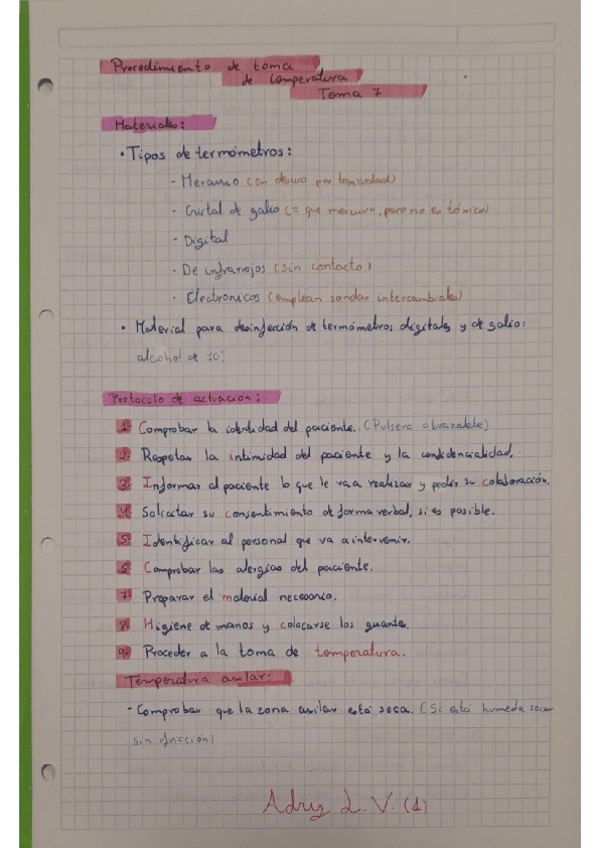 Procedimiento de toma
de temperatura
Tema 7
Materiales:
• Tipos de termómetros:
- Mercurio (en desuso por toxicidad)
- Cristal de galio (= que mercurio, pero no es tóxico)
- Digital
- De infrarrojos (sin contacto)
- Electronicos (emplean sondas intercambiales)
• Material para desinfección de termómetros digitales y de galio:
alcohol de 70°
Protocolo de actuación:
1. Comprobar la identidad del paciente. (Pulsera o brazalete)
2. Respetar la intimidad del paciente y la confidencialidad.
3. Informar al paciente lo que le va a realizar y pedir su colaboración.
4. Solicitar su consentimiento de forma verbal, si es posible.
5. Identificar al personal que va a intervenir.
6. Comprobar las alergias del paciente.
7. Preparar el material necesario.
8. Higiene de manos y colocarse los guantes.
9. Proceder a la toma de temperatura.
Temperatura axilar:
- Comprobar que la zona axilar está seca. (Si está humeda secar
sin fricción)
Adry L. V. (1)